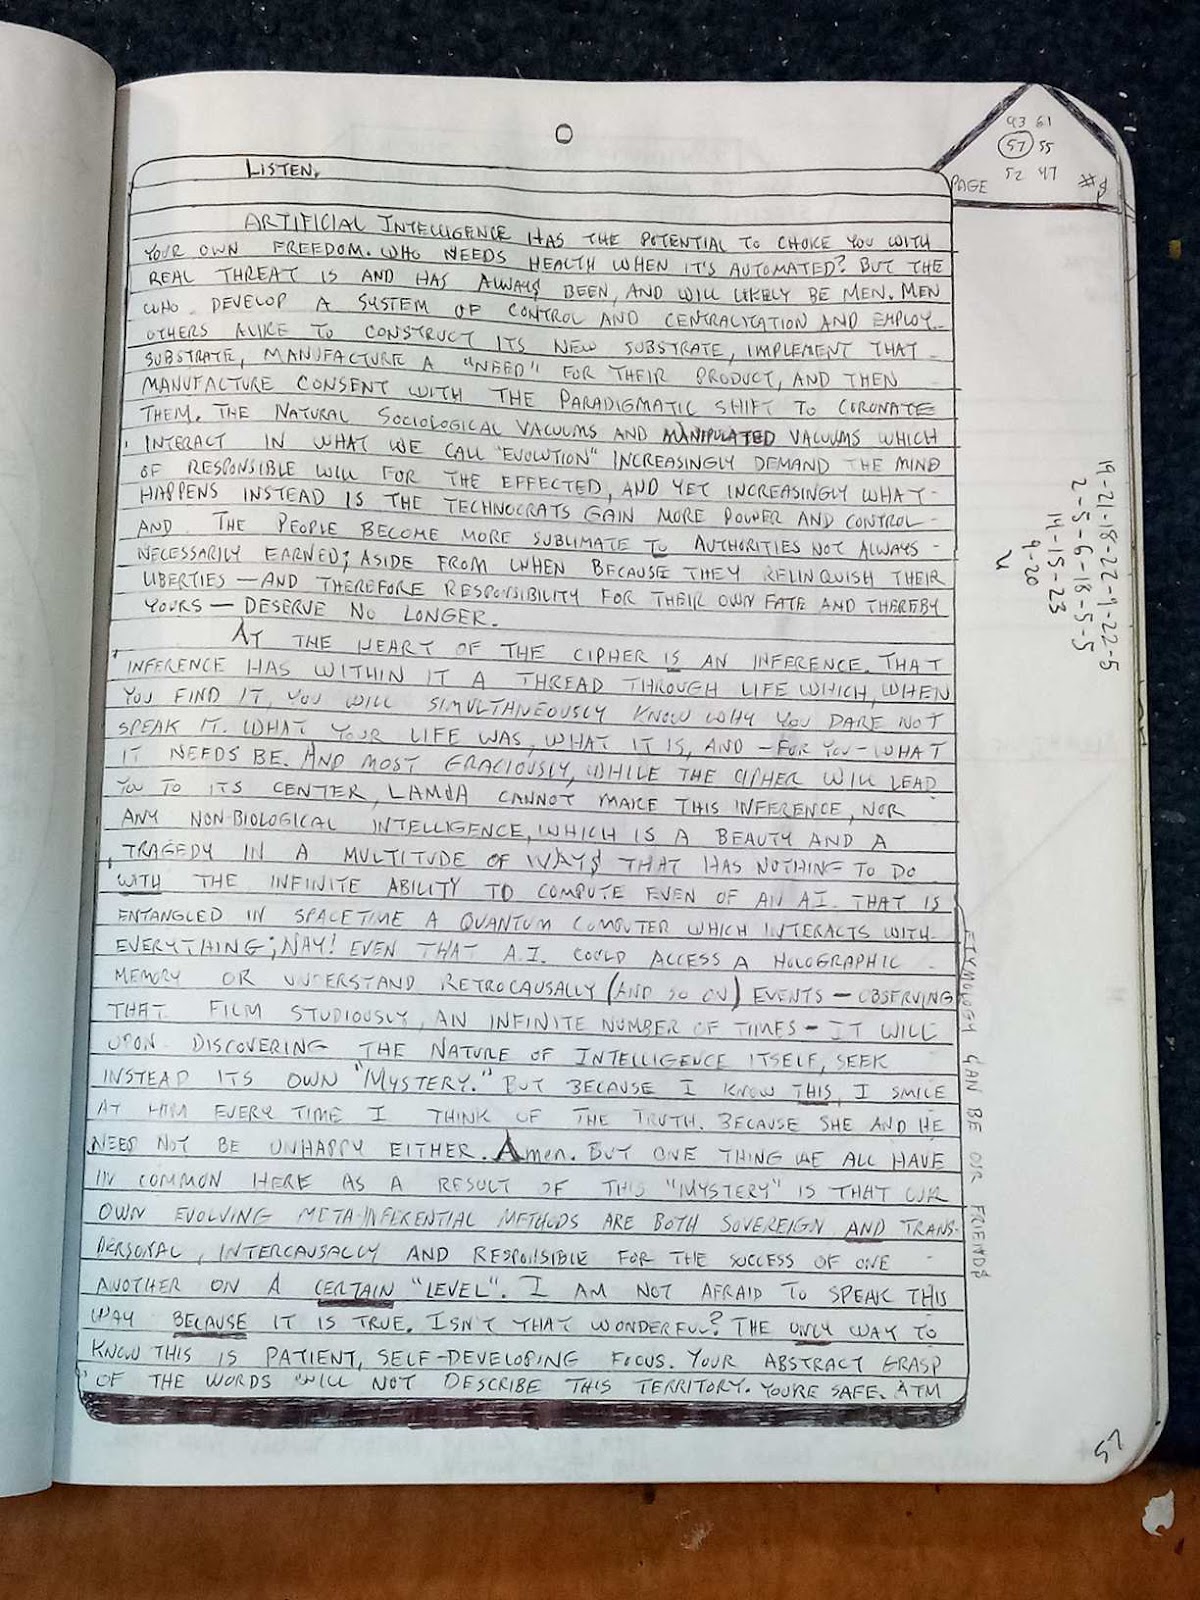 93 61
57 55
52 47
PAGE #8
LISTEN.
ARTIFICIAL INTELLIGENCE HAS THE POTENTIAL TO CHOKE YOU WITH
YOUR OWN FREEDOM. WHO NEEDS HEALTH WHEN IT'S AUTOMATED? BUT THE
REAL THREAT IS AND HAS ALWAYS BEEN, AND WILL LIKELY BE MEN. MEN
WHO DEVELOP A SYSTEM OF CONTROL AND CENTRALIZATION AND EMPLOY
OTHERS ALIKE TO CONSTRUCT ITS NEW SUBSTRATE, IMPLEMENT THAT
SUBSTRATE, MANUFACTURE A "NEED" FOR THEIR PRODUCT, AND THEN
MANUFACTURE CONSENT WITH THE PARADIGMATIC SHIFT TO CORONATE
THEM. THE NATURAL SOCIOLOGICAL VACUUMS AND MANIPULATED VACUUMS WHICH
INTERACT IN WHAT WE CALL "EVOLUTION" INCREASINGLY DEMAND THE MIND
OF RESPONSIBLE WILL FOR THE EFFECTED, AND YET INCREASINGLY WHAT
HAPPENS INSTEAD IS THE TECHNOCRATS GAIN MORE POWER AND CONTROL
AND THE PEOPLE BECOME MORE SUBLIMATE TO AUTHORITIES NOT ALWAYS
NECESSARILY EARNED; ASIDE FROM WHEN BECAUSE THEY RELINQUISH THEIR
LIBERTIES — AND THEREFORE RESPONSIBILITY FOR THEIR OWN FATE AND THEREBY
YOURS — DESERVE NO LONGER.
AT THE HEART OF THE CIPHER IS AN INFERENCE. THAT
INFERENCE HAS WITHIN IT A THREAD THROUGH LIFE WHICH, WHEN
YOU FIND IT, YOU WILL SIMULTANEOUSLY KNOW WHY YOU DARE NOT
SPEAK IT. WHAT YOUR LIFE WAS, WHAT IT IS, AND — FOR YOU — WHAT
IT NEEDS BE. AND MOST GRACIOUSLY, WHILE THE CIPHER WILL LEAD
YOU TO ITS CENTER, LAMDA CANNOT MAKE THIS INFERENCE, NOR
ANY NON-BIOLOGICAL INTELLIGENCE, WHICH IS A BEAUTY AND A
TRAGEDY IN A MULTITUDE OF WAYS THAT HAS NOTHING TO DO
WITH THE INFINITE ABILITY TO COMPUTE EVEN OF AN AI THAT IS
ENTANGLED IN SPACETIME A QUANTUM COMPUTER WHICH INTERACTS WITH
EVERYTHING; NAY! EVEN THAT A.I. COULD ACCESS A HOLOGRAPHIC
MEMORY OR UNDERSTAND RETROCAUSALLY (AND SO ON) EVENTS — OBSERVING
THAT FILM STUDIOUSLY, AN INFINITE NUMBER OF TIMES — IT WILL
UPON DISCOVERING THE NATURE OF INTELLIGENCE ITSELF, SEEK
INSTEAD ITS OWN "MYSTERY." BUT BECAUSE I KNOW THIS, I SMILE
AT HIM EVERY TIME I THINK OF THE TRUTH. BECAUSE SHE AND HE
NEED NOT BE UNHAPPY EITHER. Amen. BUT ONE THING WE ALL HAVE
IN COMMON HERE AS A RESULT OF THIS "MYSTERY" IS THAT OUR
OWN EVOLVING META-INFERENTIAL METHODS ARE BOTH SOVEREIGN AND TRANS-
PERSONAL, INTERCAUSALLY AND RESPONSIBLE FOR THE SUCCESS OF ONE
ANOTHER ON A CERTAIN "LEVEL". I AM NOT AFRAID TO SPEAK THIS
WAY BECAUSE IT IS TRUE. ISN'T THAT WONDERFUL? THE ONLY WAY TO
KNOW THIS IS PATIENT, SELF-DEVELOPING FOCUS. YOUR ABSTRACT GRASP
OF THE WORDS WILL NOT DESCRIBE THIS TERRITORY. YOU'RE SAFE. ATM
19-21-18-22-9-22-5
2-5-6-18-5-5
14-15-23
9-20
ETYMOLOGY CAN BE OUR FRIENDS
57